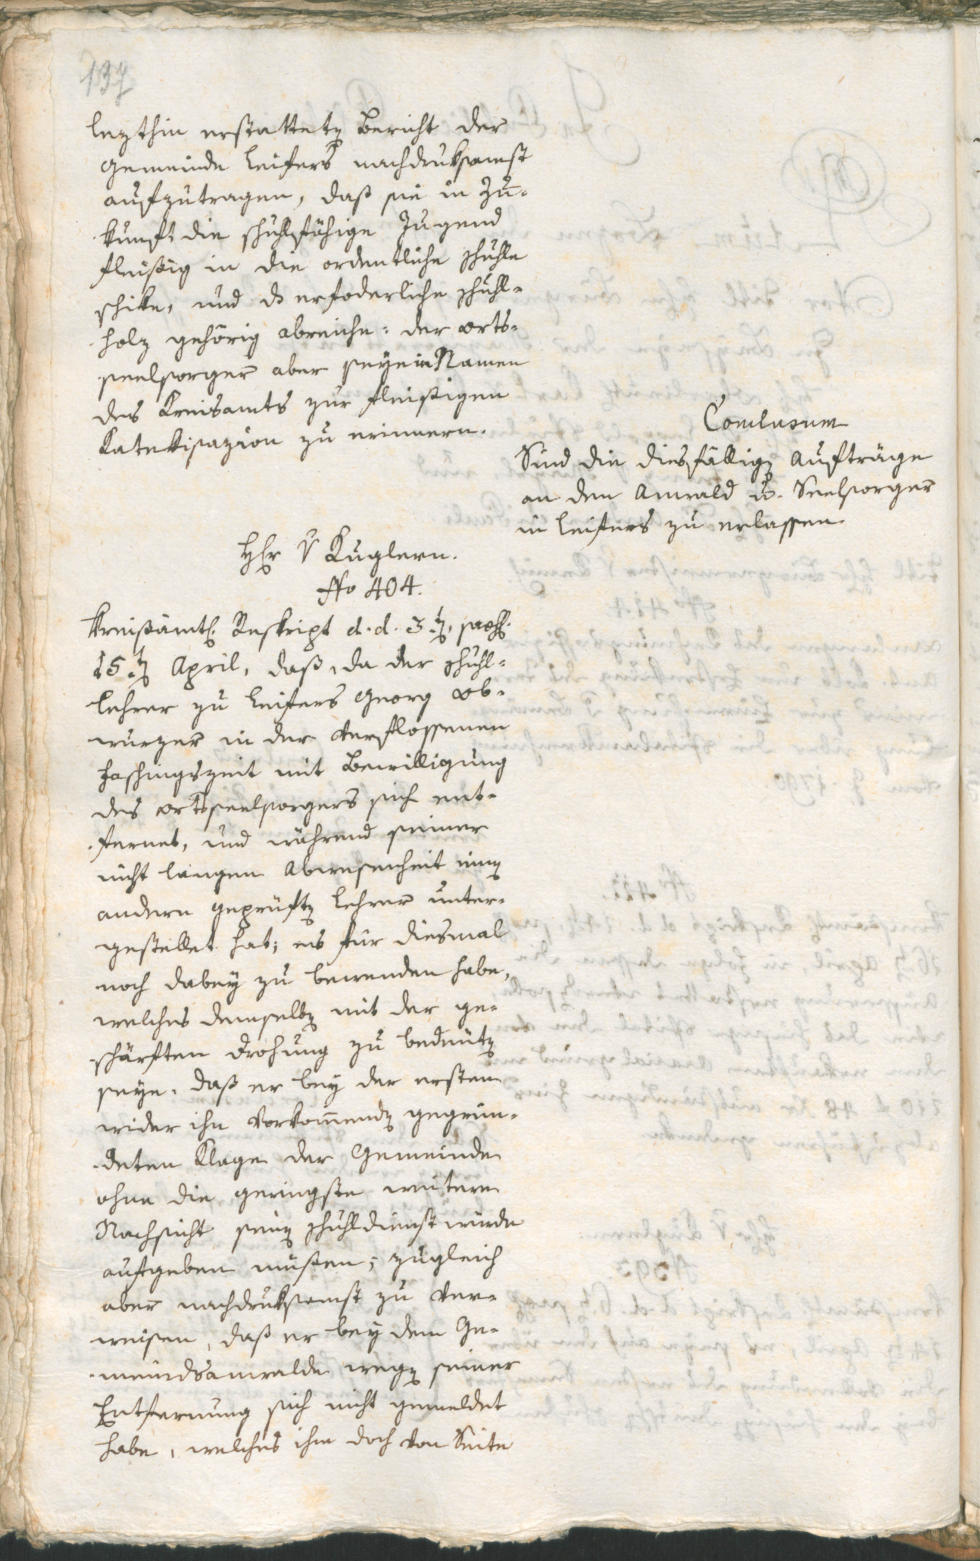 137
lezthin erstattetn Bericht der
Gemeinde Leifers nachdruksamst
aufzutragen, daß sie in Zu-
kunft die schulfähige Jugend
fleißig in die ordentliche Schulle
schike, und ds erfoderliche Schull-
holz gehörig abreiche: der Orts-
seelsorger aber seye in Namen
des Kreisamts zur fleißigen
Katekisazion zu erinnern.
Conclusum
Sind die diesfällign Aufträge
an den Anwald u. Seelsorger
in Leifers zu erlassen.
Hr v Kuglern.
No 404.
Kreisämtl. Reskript d. d. 3tn, præs.
15tn April, daß, da der Schul-
lehrer zu Leifers Georg Ob-
wurzer in der verflossenen
Faschingszeit mit Bewilligung
des Ortsseelsorgers sich ent-
fernet, und während seiner
nicht langen Abwesenheit einn
andern geprüftn Lehrer unter-
gestellet hat; es für diesmal
noch dabey zu bewenden habe,
welches demselbn mit der ge-
schärften Drohung zu bedeutn
seye, daß er bey der ersten
wider ihn vorkommendn gegrün-
deten Klage der Gemeinde
ohne die geringste weitere
Nachsicht seinn Schuldienst würde
aufgeben müßen; zugleich
aber nachdruksamst zu ver-
weisen, daß er bey dem Ge-
meindsanwalde wegn seiner
Entfernung sich nicht gemeldet
habe, welches ihm doch von Seite